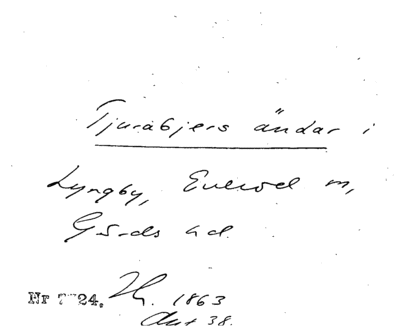 Tjurabjers ändar i
Lyngby, Everöd m,
Gärds hd.
Nr 24. 1863
38.